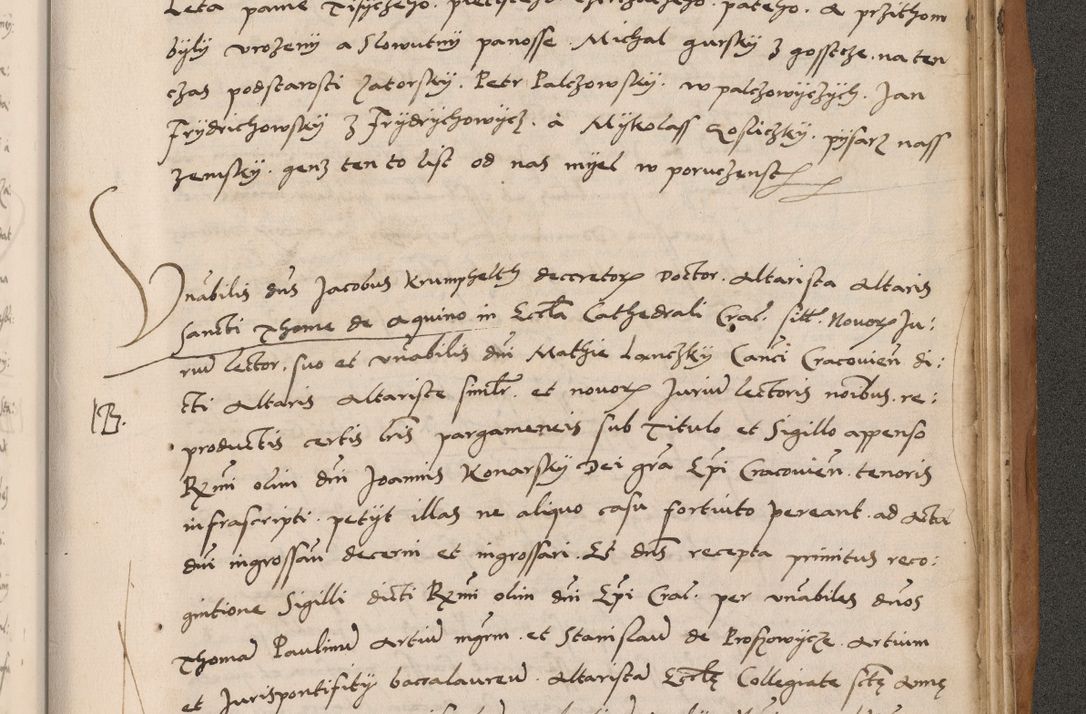 Leta panie Tisyczego. pieczsetego czterdziestego. patego. A przithom
byly vrozeny a Slowutny panosse. Michal gursky z gosstcze. na ten
czas podstarosti zatorsky. Petr Palczowsky. w palczowyczych. Jan
Frydrichowsky z Frydrychowycz. à Mykolass Rosliczky. pysarz nass
zemsky. genz ten to list od nas myel w poruczenst
Vnabilis dns Jacobus Krumphelth decretorz Doctor. Altarista Altaris
sancti Thome de Aquino in Eccla Cathedrali Crac. silr. Novorz Ju:
rium lector. suo et vnabilis dni Mathie Lanczky Canci Cracovien di:
cti Altaris Altariste similr. et novorz Jurium lectoris noibus. re:
B.
productis certis lris pargameneis sub Titulo et Sigillo appenso
Rxmi olim dni Joannis Konarsky Dei gra Epi Cracovien. tenoris
infrascripti. petyt illas ne aliquo casu fortuito pereant. ad Acta
dni ingrossan decerni et ingrossari. Et dns recepta primitus reco:
gnitione Sigilli dicti Rxmi olim dni Epi Crac. per vnabiles dnos
Thoma Paulinu Artiu mgrm. et Stanislau de Profzowycze. Artium
et Jurispontifity baccalaureu. Altarista Eccle Collegiate scte Anne